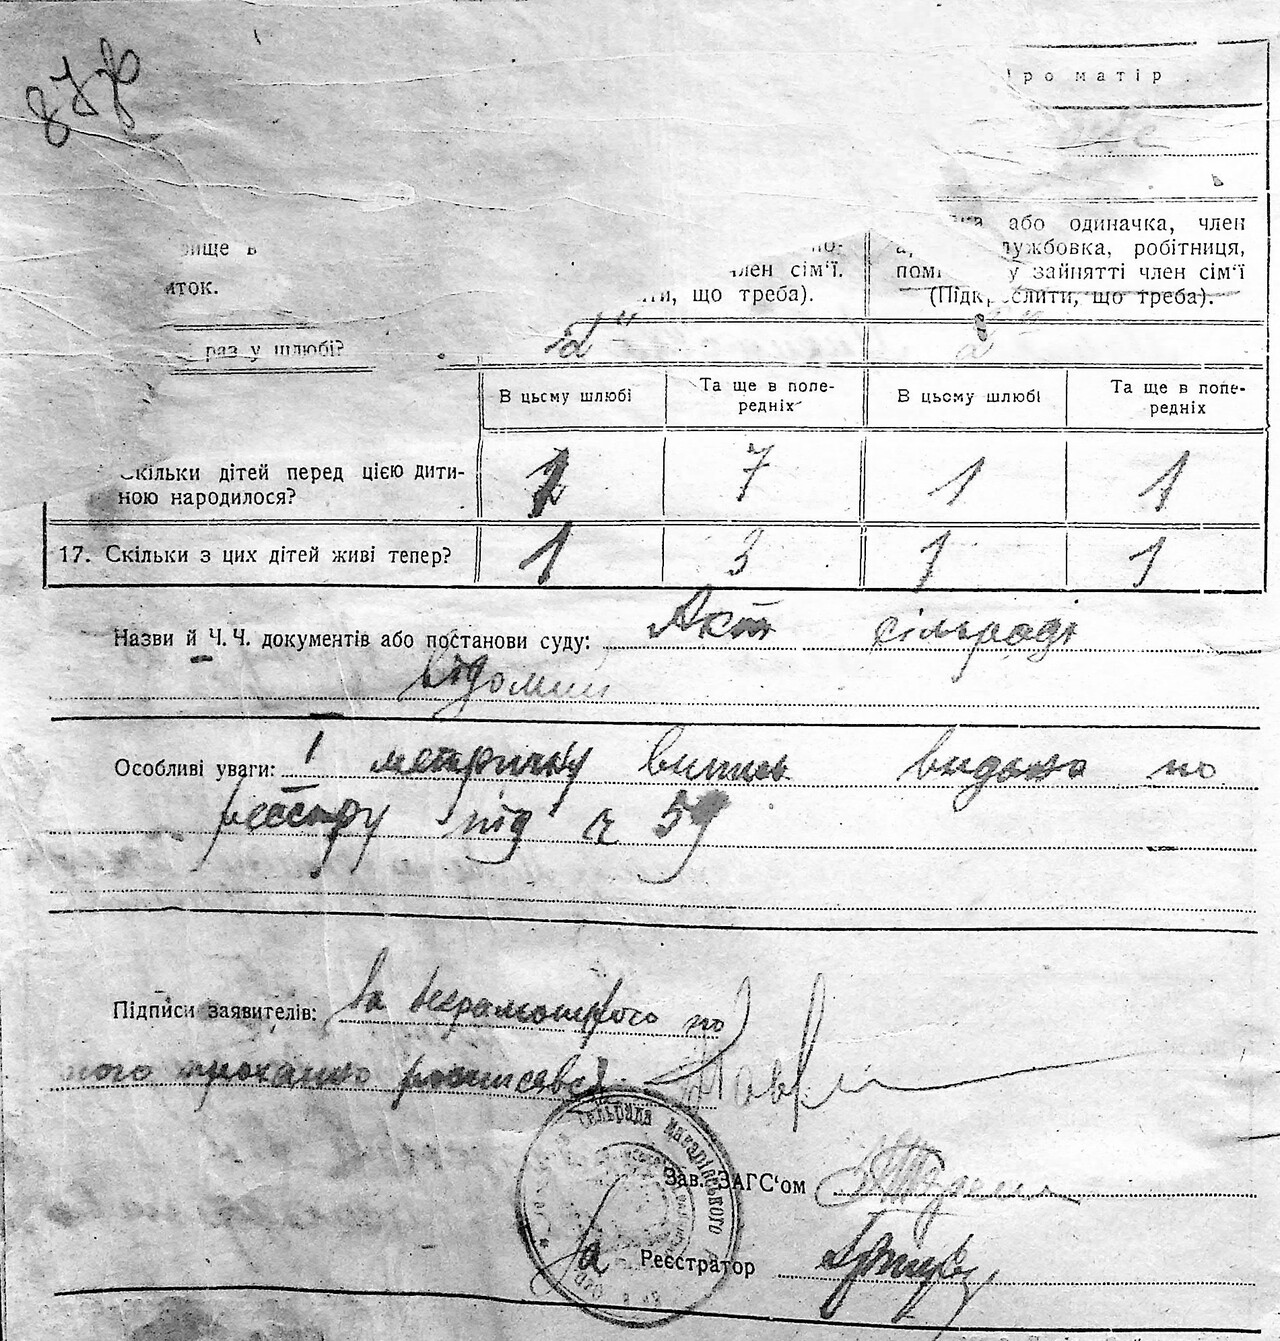 877
ро матір
або одиначка, член
ище в
по-
ужбовка, робітниця,
член сім'ї.
пом у зайнятті член сім'ї
ток.
ти, що треба).
(Підкреслити, що треба).
раз у шлюбі?
2
2
В цьому шлюбі
Та ще в попе-
редніх
В цьому шлюбі
Та ще в попе-
редніх
Скільки дітей перед цією дити-
ною народилося?
7
1
1
17. Скільки з цих дітей живі тепер?
1
3
1
1
Назви й Ч. Ч. документів або постанови суду: Акт сільраді
відомий
Особливі уваги: 1 метричну випись видано по
реєстру під ч 59
Підписи заявителів: за неграмотного по
його проханню росписався
сільрада Макарівського
Зав. ЗАГС'ом
Реєстратор